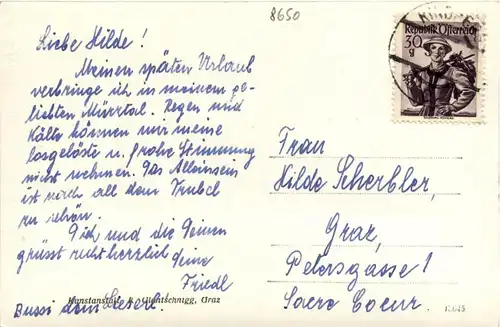 8650
Liebe Hilde!
Meinen späten Urlaub
verbringe ich in meinem ge-
liebten Mürztal. Regen und
Kälte können mir meine
losgelöste u. frohe Stimmung
nicht nehmen. Das Alleinsein
ist nach all dem Trubel
so schön.
Dich und die Deinen
grüsst recht herzlich
Deine
Friedl
Bussi dem Leserl!
Kunstanstalt Gluntschnigg, Graz
KIND
Republik Österreich
30
g
Frau
Hilde Scherbler,
Graz,
Petersgasse 1
Sacre Coeur